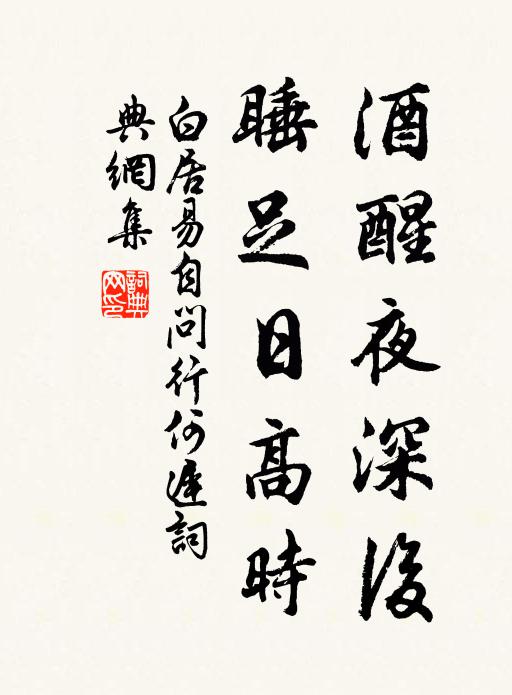 酒醒夜深後
睡足日高時
白居易自問行何遲詞
典網集
詞典网印